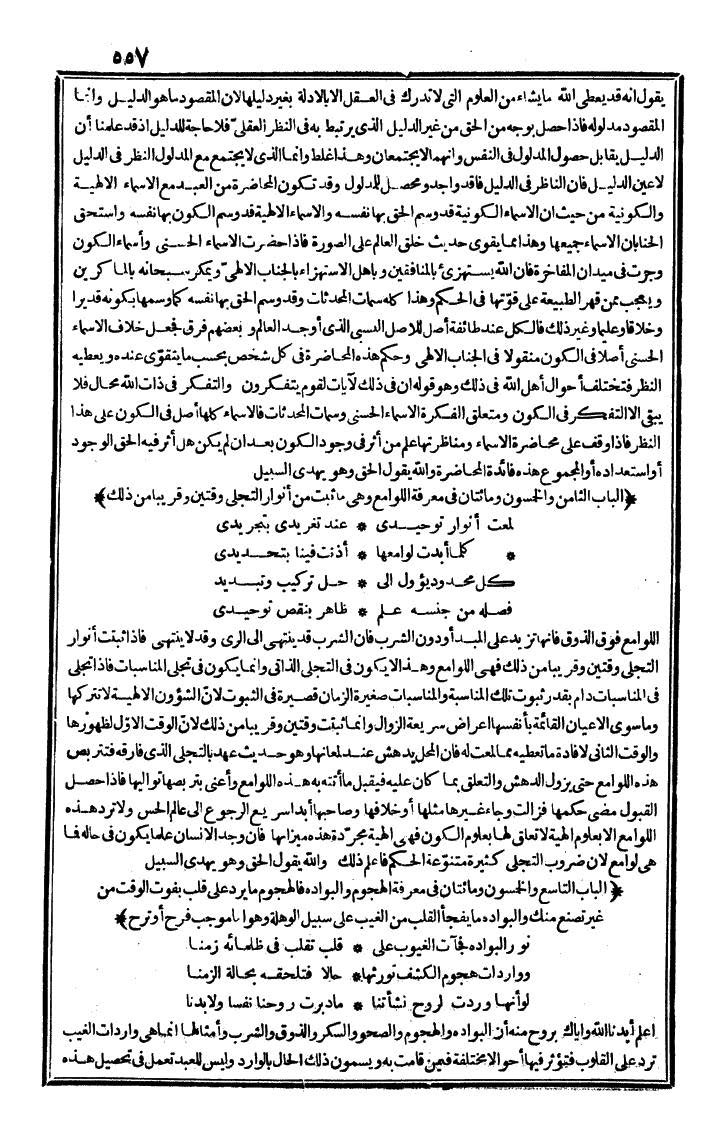 ٥٥٧
يقول انه قد يعطى الله ما يشاء من العلوم التى لا تدرك فى العقل الا بالادلة بغير دليلها لان المقصود ما هو الدليل وانما
المقصود مدلوله فاذا حصل بوجه من الحق من غير الدليل الذى يرتبط به فى النظر العقلىّ فلا حاجة للدليل اذ قد علمنا أن
الدليل يقابل حصول المدلول فى النفس وانهما لا يجتمعان وهذا غلط وانما الذى لا يجتمع مع المدلول النظر فى الدليل
لا عين الدليل فان الناظر فى الدليل فاقد واجد ومحصل للدلول وقد تكون المحاضرة من العبد مع الاسماء الالهية
والكونية من حيث ان الاسماء الكونية قد وسم الحق بها نفسه والاسماء الالهية قد وسم الكون بها نفسه واستحق
الجنابان الاسماء جميعها وهذا مما يقوى حديث خلق العالم على الصورة فاذا حضرت الاسماء الحسنى وأسماء الكون
وجرت فى ميدان المفاخرة فان الله يستهزئ بالمنافقين وباهل الاستهزاء بالجناب الالهىّ ويمكر سبحانه بالماكرين
ويعجب ممن قهر الطبيعة على قوّتها فى الحكم وهذا كله سمات المحدثات وقد وسم الحق بها نفسه كما وسمها بكونه قديرا
وخلاقا وعليما وغير ذلك فالكل عند طائفة أصل للاصل النسبى الذى أوجد العالم وبعضهم فرق فجعل خلاف الاسماء
الحسنى أصلا فى الكون منقولا فى الجناب الالهى وحكم هذه المحاضرة فى كل شخص بحسب ما يتقوّى عنده ويعطيه
النظر فتختلف أحوال أهل الله فى ذلك وهو قوله ان فى ذلك لآيات لقوم يتفكرون والتفكر فى ذات الله محال فلا
يبقى الا التفكر فى الكون ومتعلق الفكرة الاسماء الحسنى وسمات المحدثات فالاسماء كلها أصل فى الكون على هذا
النظر فاذا وقف على محاضرة الاسماء ومناظرتها علم من أثر فى وجود الكون بعد ان لم يكن هل أثر فيه الحق الوجود
أو استعداده أو المجموع هذه فائدة المحاضرة والله يقول الحق وهو يهدى السبيل
﴿الباب الثامن والخمسون ومائتان فى معرفة اللوامع وهى ما ثبت من أنوار التجلى وقتين وقريبا من ذلك﴾
لمعت أنوار توحيدى * عند تغريدى بتجريدى
* كلما أبدت لوامعها * أذنت فينا بتحديدى
كل محدود يؤول الى * حل تركيب وتبديد
فصله من جنسه علم * ظاهر بنقص توحيدى
اللوامع فوق الذوق فانها تزيد على المبدأ ودون الشرب فان الشرب قد ينتهى الى الرى وقد لا ينتهى فاذا ثبتت أنوار
التجلى وقتين وقريبا من ذلك فهى اللوامع وهذا لا يكون فى التجلى الذاتى وانما يكون فى تجلى المناسبات فاذا تجلى
فى المناسبات دام بقدر ثبوت تلك المناسبة والمناسبات صغيرة الزمان قصيرة فى الثبوت لانّ الشؤون الالهية لا تتركها
وما سوى الاعيان القائمة بأنفسها اعراض سريعة الزوال وانما ثبتت وقتين وقريبا من ذلك لانّ الوقت الاوّل لظهورها
والوقت الثانى لافادة ما تعطيه مما لمعت له فان المحل يدهش عند لمعانها وهو حديث عهد بالتجلى الذى فارقه فتتربص
هذه اللوامع حتى يزول الدهش والتعلق بما كان عليه فيقبل ما أتته به هذه اللوامع وأعنى بتربصها تواليها فاذا حصل
القبول مضى حكمها فزالت وجاء غيرها مثلها أو خلافها وصاحبها أبدا سريع الرجوع الى عالم الحس ولا ترد هذه
اللوامع الا بعلوم الهية لا تعلق لها بعلوم الكون فهى الهية مجرّدة هذه ميزانها فان وجد الانسان علما بكون فى حاله فما
هى لوامع لان ضروب التجلى كثيرة متنوّعة الحكم فاعلم ذلك والله يقول الحق وهو يهدى السبيل
﴿الباب التاسع والخمسون ومائتان فى معرفة الهجوم والبواده فالهجوم ما يرد على قلب بقوت الوقت من
غير تصنع منك والبواده ما يفجأ القلب من الغيب على سبيل الوهلة وهو اما موجب فرح أو ترح﴾
نور البواده فجآت الغيوب على * قلب تقلب فى ظلمائه زمنا
وواردات هجوم الكشف تورثها * حالا فتلحقه بحالة الزمنا
لو أنها وردت لروح نشأتنا * ما دبرت روحنا نفسا ولا بدنا
اعلم أيدنا الله واياك بروح منه أن البواده والهجوم والصحو والسكر والذوق والشرب وأمثالها انما هى واردات الغيب
ترد على القلوب فتؤثر فيها أحوالا مختلفة فمن قامت به ويسمون ذلك الحال بالوارد وليس للعبد تعمل فى تحصيل هذه